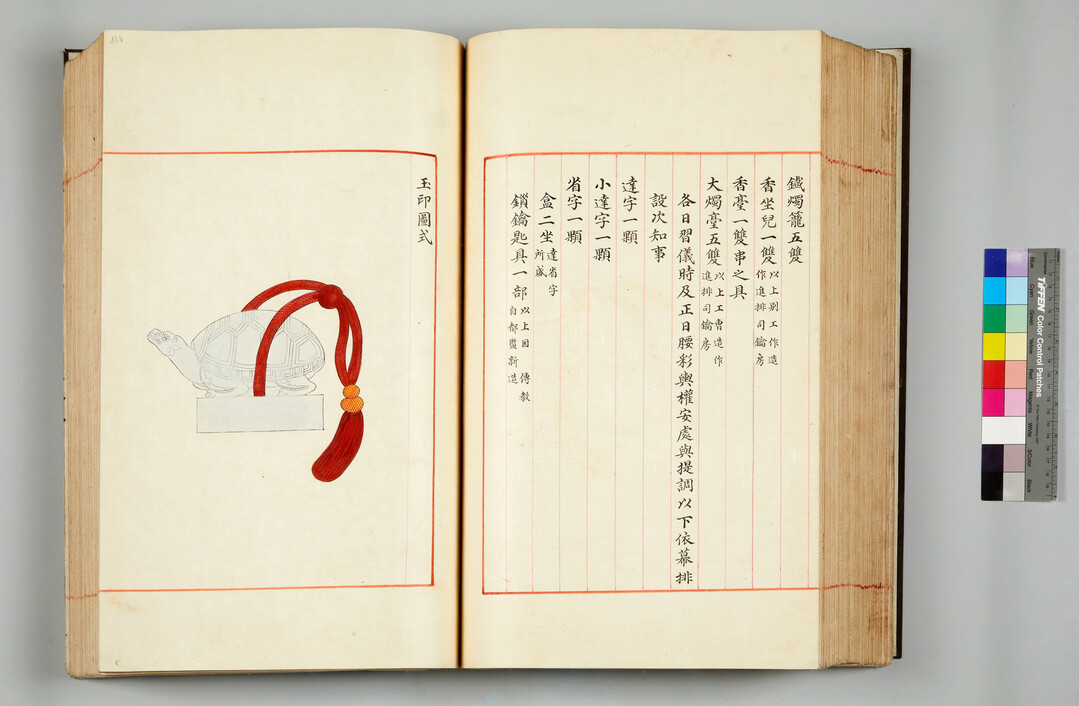 鐵燭籠五雙
香坐兒一雙以上別工作造
作進排司鑰房
香臺一雙串之具
大燭臺五雙以上工曺造作
進排司鑰房
各日習儀時及正日腰彩輿權安處與提調以下依幕排
設次知事
達字一顆
小達字一顆
省字一顆
盒二坐達省字
所盛
鎖鑰匙具一部以上因 傳教
自都監新造
玉印圖式
124
TIFFEN Color Control Patches
Blue
Cyan
Green
Yellow
Red
Magenta
White
3/Color
Black